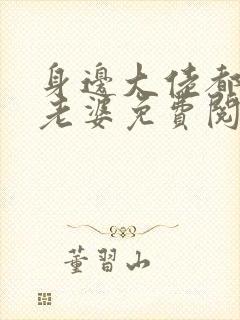 身邊大佬都
老婆免費閱
董習山